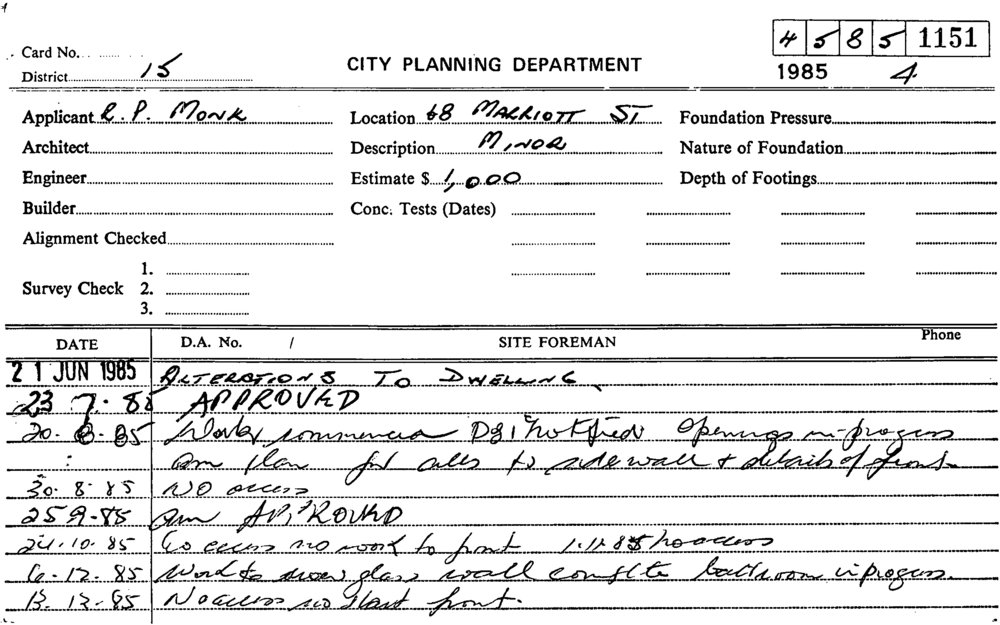 4 5 8 5 1151
Card No.
District 15
CITY PLANNING DEPARTMENT
1985 4
Applicant R. P. MONK
Location 68 MARRIOTT ST
Foundation Pressure
Architect
Description MINOR
Nature of Foundation
Engineer
Estimate $ 1,000
Depth of Footings
Builder
Conc. Tests (Dates)
Alignment Checked
1.
Survey Check 2.
3.
DATE
D.A. No. /
SITE FOREMAN
Phone
21 JUN 1985 ALTERATIONS TO DWELLING
23 7. 85 APPROVED
20. 8. 85 Work Openings in progress
am plan for to sidewall + details of front
30. 8. 85 NO access
25 9. 85 am APPROVED
24. 10. 85 access no work to front 1.11.85 no access
6. 12. 85 Work to glass wall bathroom in progress.
13. 12. 85 No access no start front.